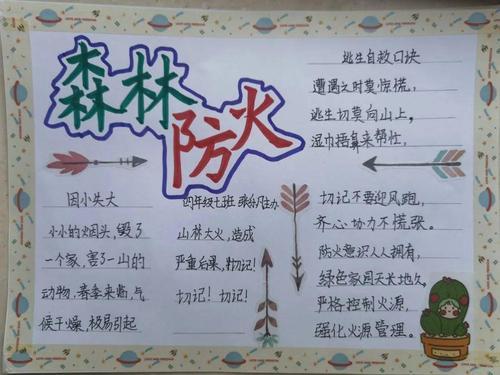 森林
防火
因小失大
小小的烟头,毁了
一个家,害了一山的
动物。春季来临,气
候干燥,极易引起
四年级七班
山林大火,造成
严重后果,切记!
切记!切记!
逃生自救口诀
遭遇之时莫惊慌,
逃生切莫向山上。
湿巾捂鼻来帮忙,
切记不要迎风跑,
齐心协力不慌张。
防火意识人人拥有,
绿色家园天长地久。
严格控制火源,
强化火源管理。